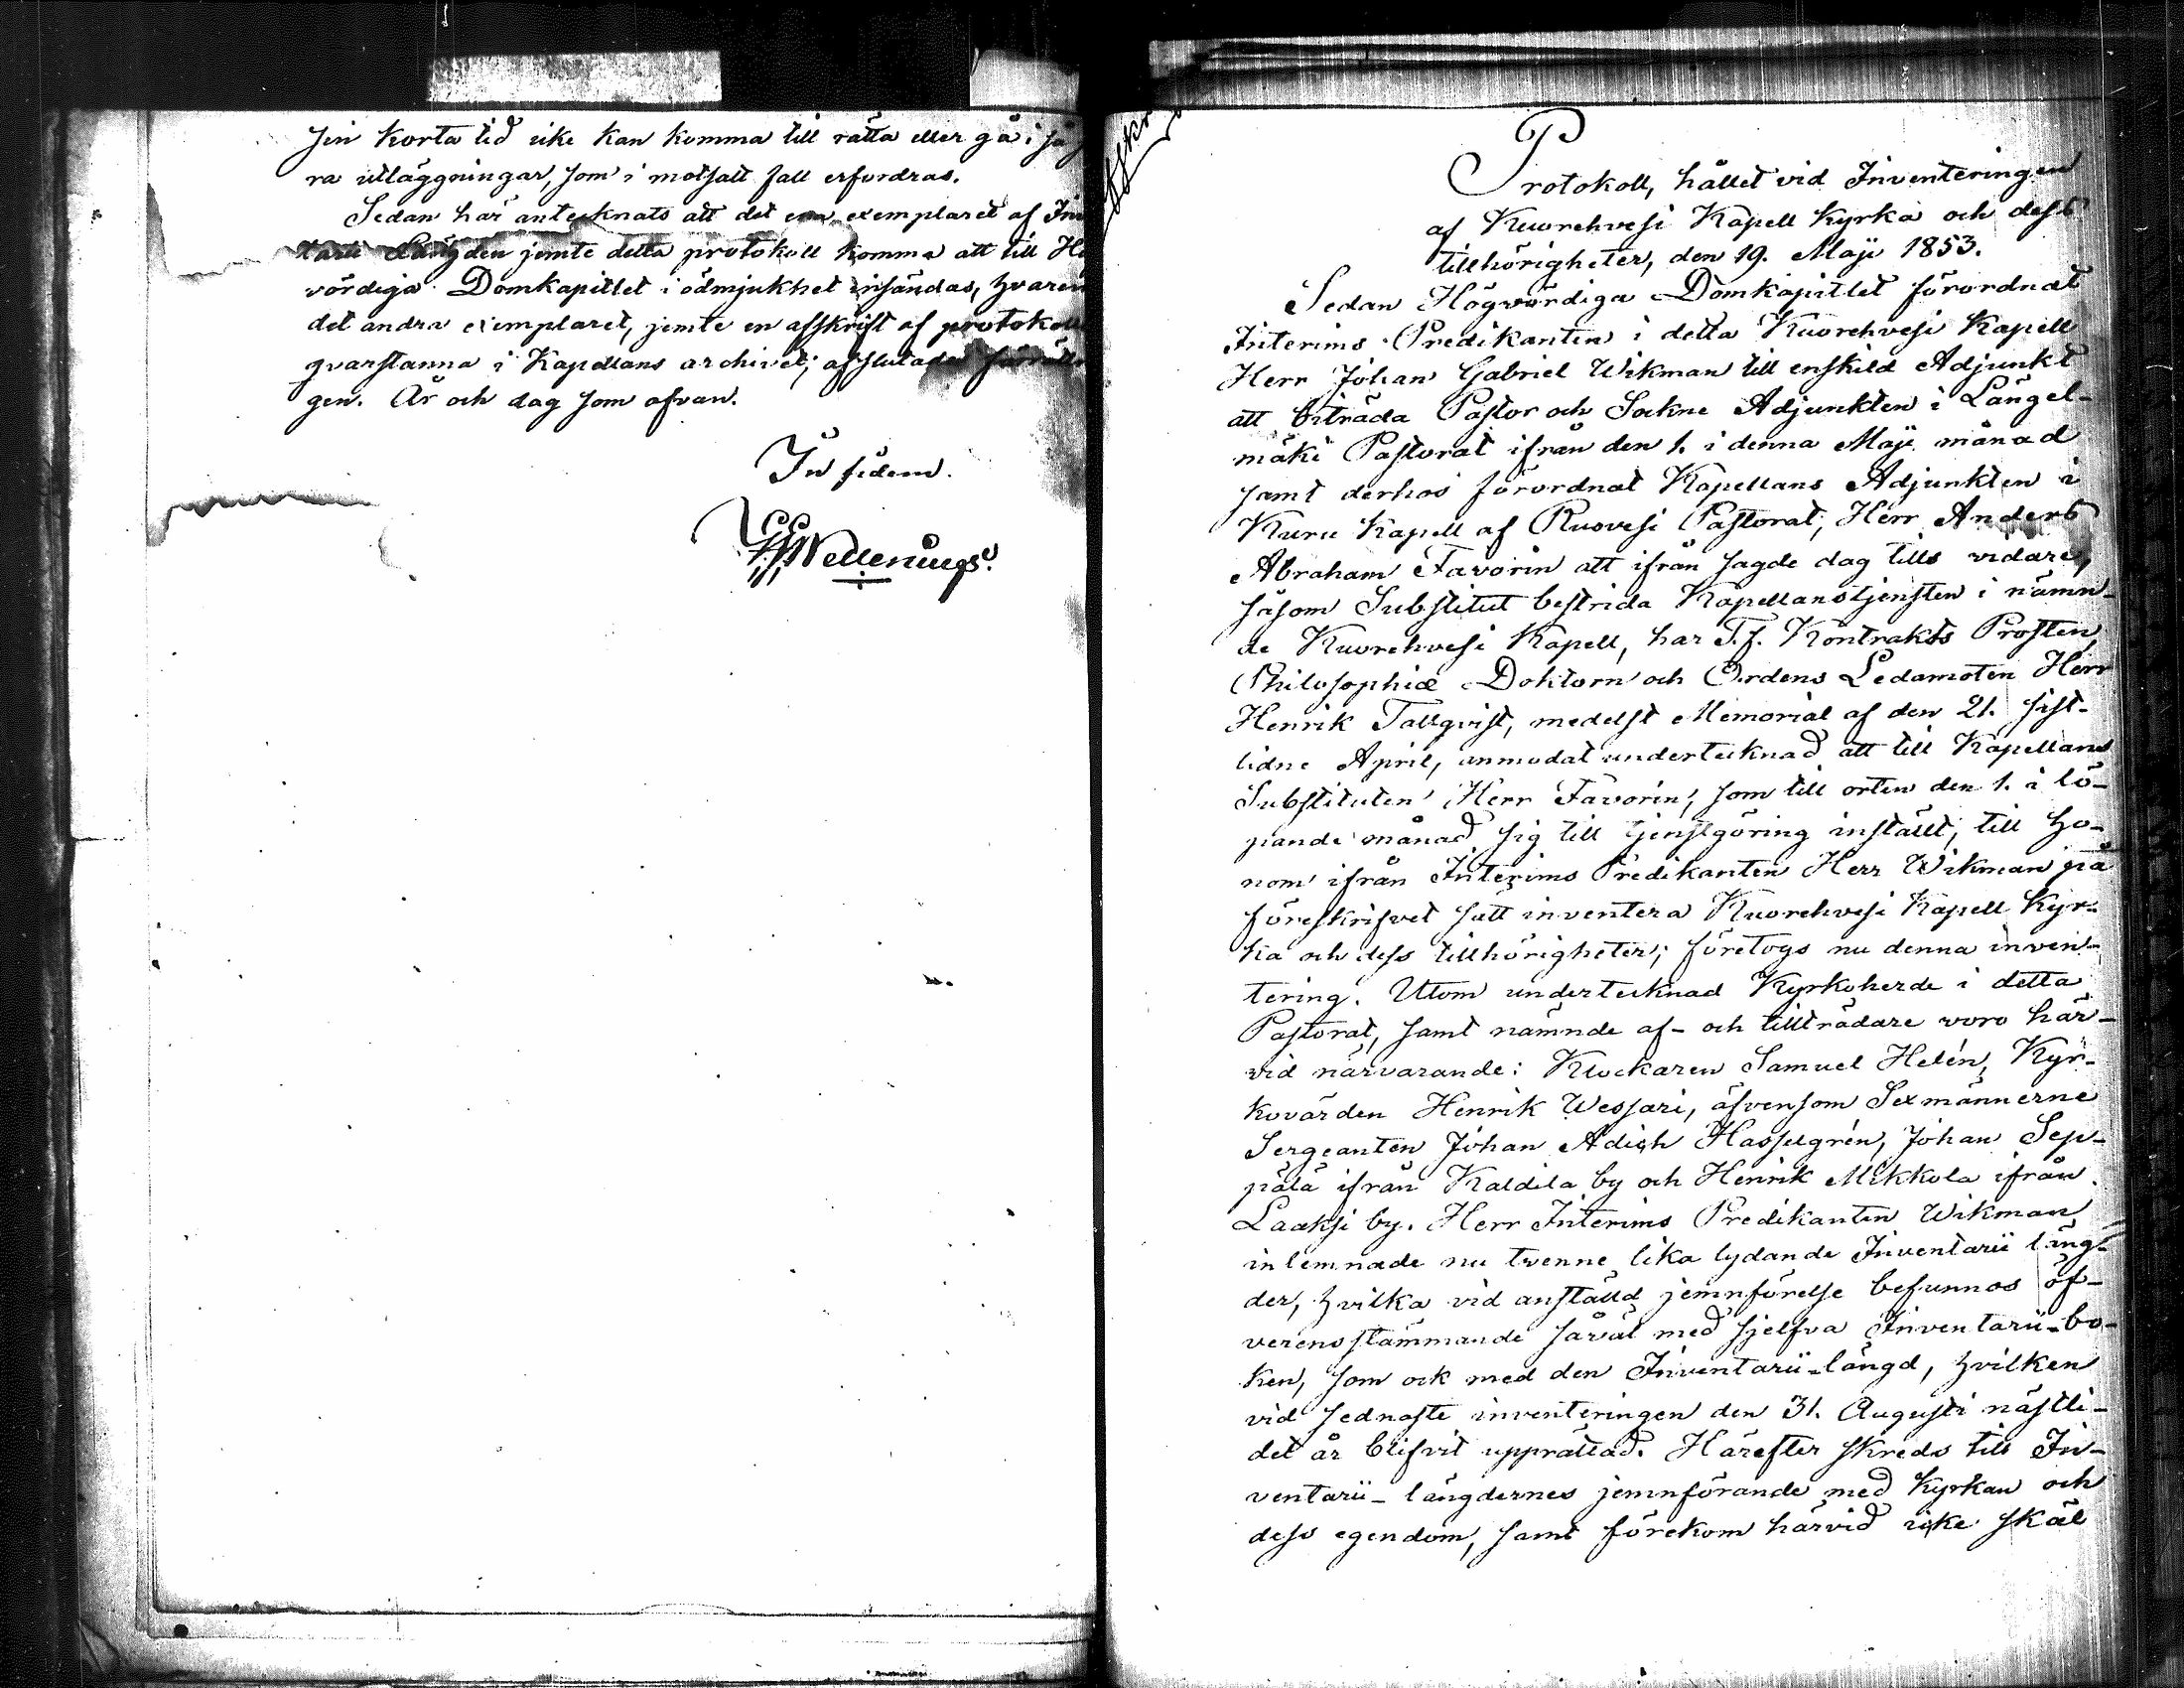 sin korta tid icke kan komma till rätta eller gå i så
ra utläggningar, som i motsatt fall erfordras.
Sedan har antecknats att det ena exemplaret af In
tarii Längden jemte detta protokoll komma att till Hö
vördiga Domkapitlet i ödmjukhet insändas, hvarem
det andra exemplaret, jemte en afskrift af protokoll
qvarstanna i Kapellans archivet; afslutades förrättn
gen. År och dag som ofvan.
In fidem.
Afskr
Protokoll, hållet vid Inventeringen
af Kuorehvesi Kapell Kyrka och dess
tillhörigheter, den 19. Maji 1853.
Sedan Högvördiga Domkapitlet förordnat
Interims Predikanten i detta Kuorehvesi Kapell
Herr Johan Gabriel Wikman till enskild Adjunkt
att biträda Pastor och Sockne Adjunkten i Längel-
mäki Pastorat ifrån den 1. i denna Maji månad
samt derhos förordnat Kapellans Adjunkten i
Kuru Kapell af Ruovesi Pastorat, Herr Anders
Abraham Favorin att ifrån sagde dag tills vidare,
såsom Substitut bestrida Kapellanstjensten i nämn-
de Kuorehvesi Kapell, har T.f. Kontrakts Prosten,
Philosophiæ Doktorn och Ordens Ledamoten Herr
Henrik Tallqvist, medelst Memorial af den 21. sist-
lidne April, anmodat undertecknad att till Kapellans
Substituten Herr Favorin, som till orten den 1. i lö-
pande månad sig till tjenstgöring inställt, till ho-
nom ifrån Interims Predikanten Herr Wikman på
föreskrifvet sätt inventera Kuorehvesi Kapell Kyr-
ka och dess tillhörigheter; företogs nu denna inven-
tering. Utom undertecknad Kyrkoherde i detta
Pastorat, samt nämnde af- och tillträdare voro här-
vid närvarande: Klockaren Samuel Helén, Kyr-
kovärden Henrik Wessari, äfvensom Sexmännerne
Sergeanten Johan Adich Haspegrén, Johan Sep-
pälä ifrån Kaldila by och Henrik Mikkola ifrån
Laaksi by. Herr Interims Predikanten Wikman
inlemnade nu twenne lika lydande Inventarii läng-
der, hvilka vid anställd jemnförelse befunnos öf-
verensstämmande såväl med sjelfva Inventarii-bo-
ken, som ock med den Inventarii-längd, hvilken
vid sednaste inventeringen den 31. Augusti nästli-
det år blifvit upprättad. Härefter skreds till In-
ventarii-längdernes jemnförande med Kyrkan och
dess egendom, samt förekom härvid icke skäl